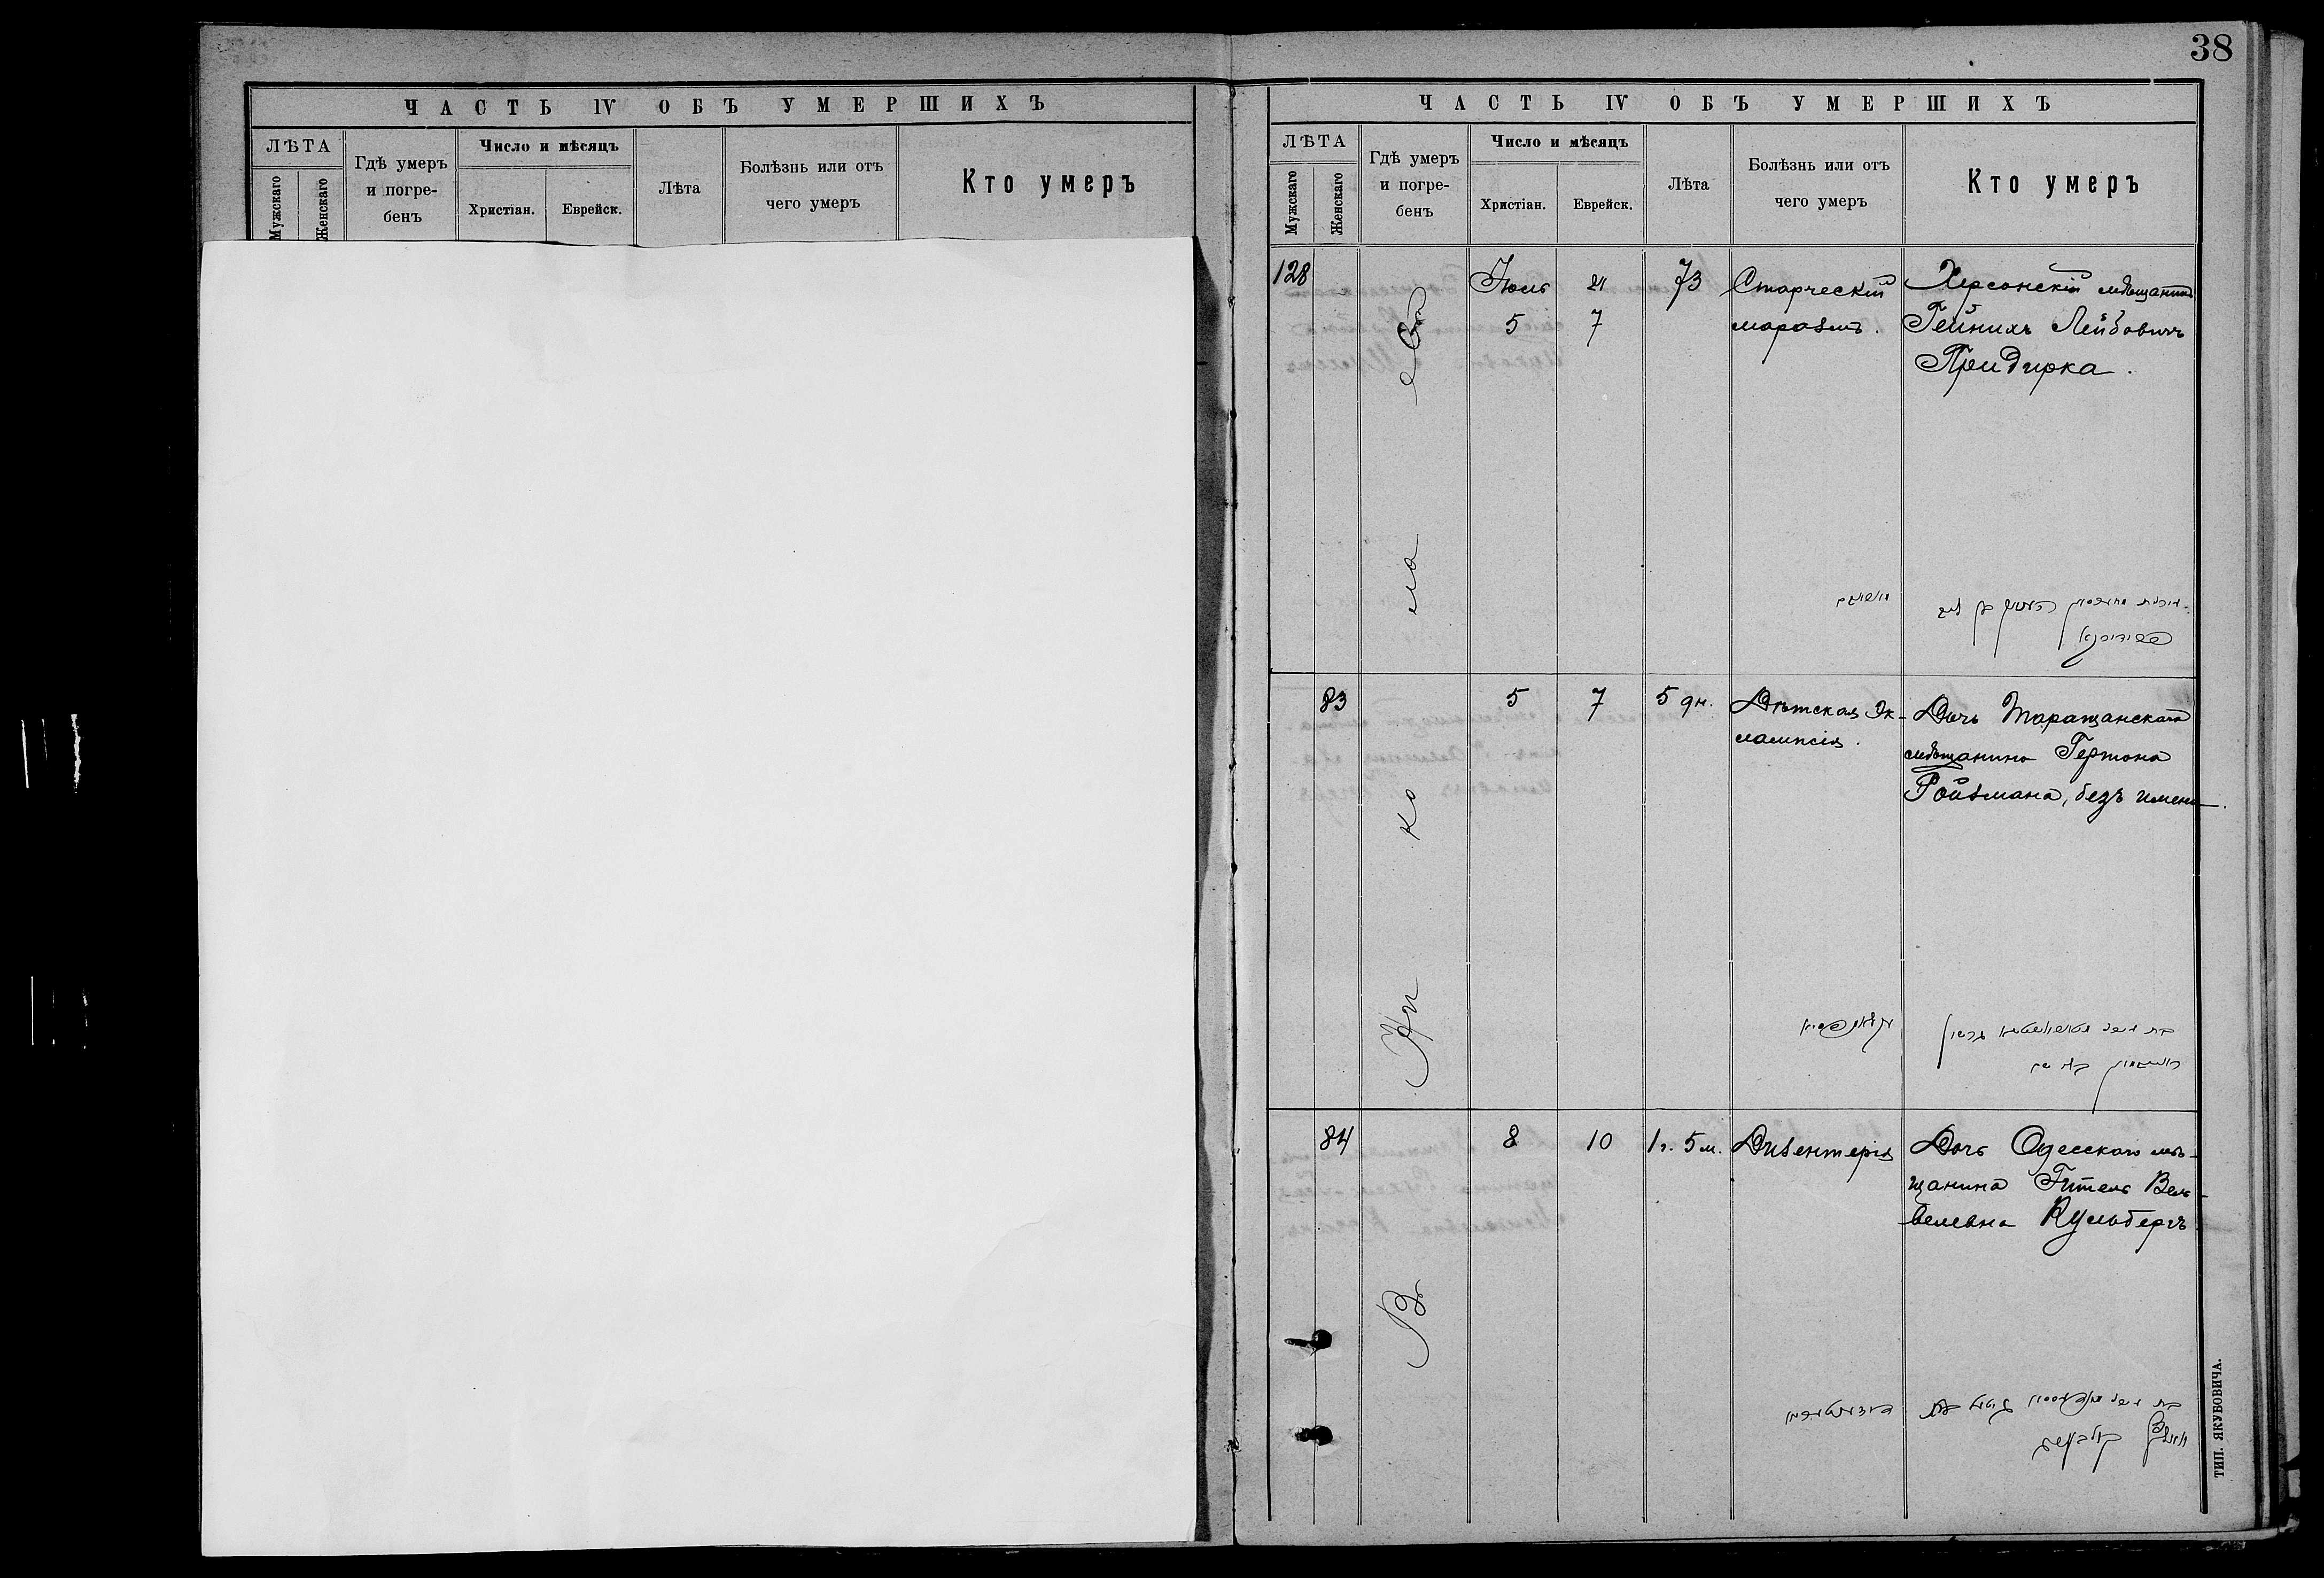 38
ЧАСТЬ IV ОБЪ УМЕРШИХЪ
ЛѢТА
Мужскаго
Женскаго
Гдѣ умеръ
и погре-
бенъ
Число и мѣсяцъ
Христіан.
Еврейск.
Лѣта
Болѣзнь или отъ
чего умеръ
Кто умеръ
ЧАСТЬ IV ОБЪ УМЕРШИХЪ
ЛѢТА
Мужскаго
Женскаго
Гдѣ умеръ
и погре-
бенъ
Число и мѣсяцъ
Христіан.
Еврейск.
Лѣта
Болѣзнь или отъ
чего умеръ
Кто умеръ
Въ Николаевѣ
128
Іюль
5
7
73
Старческій
маразмъ.
Херсонскій мѣщанинъ
Гейнихъ Лейбовичъ
Придирка.
83
5
7
5 дн.
Дѣтская Эк-
лампсія.
Дочь Таращанскаго
мѣщанина Гершона
Ройзмана, безъ имени.
84
8
10
1 г. 5 м.
Дизентерія
Дочь Одесскаго мѣ-
щанина Гитель Вель-
велевна Кульбергъ
ТИП. ЯКУБОВИЧА.